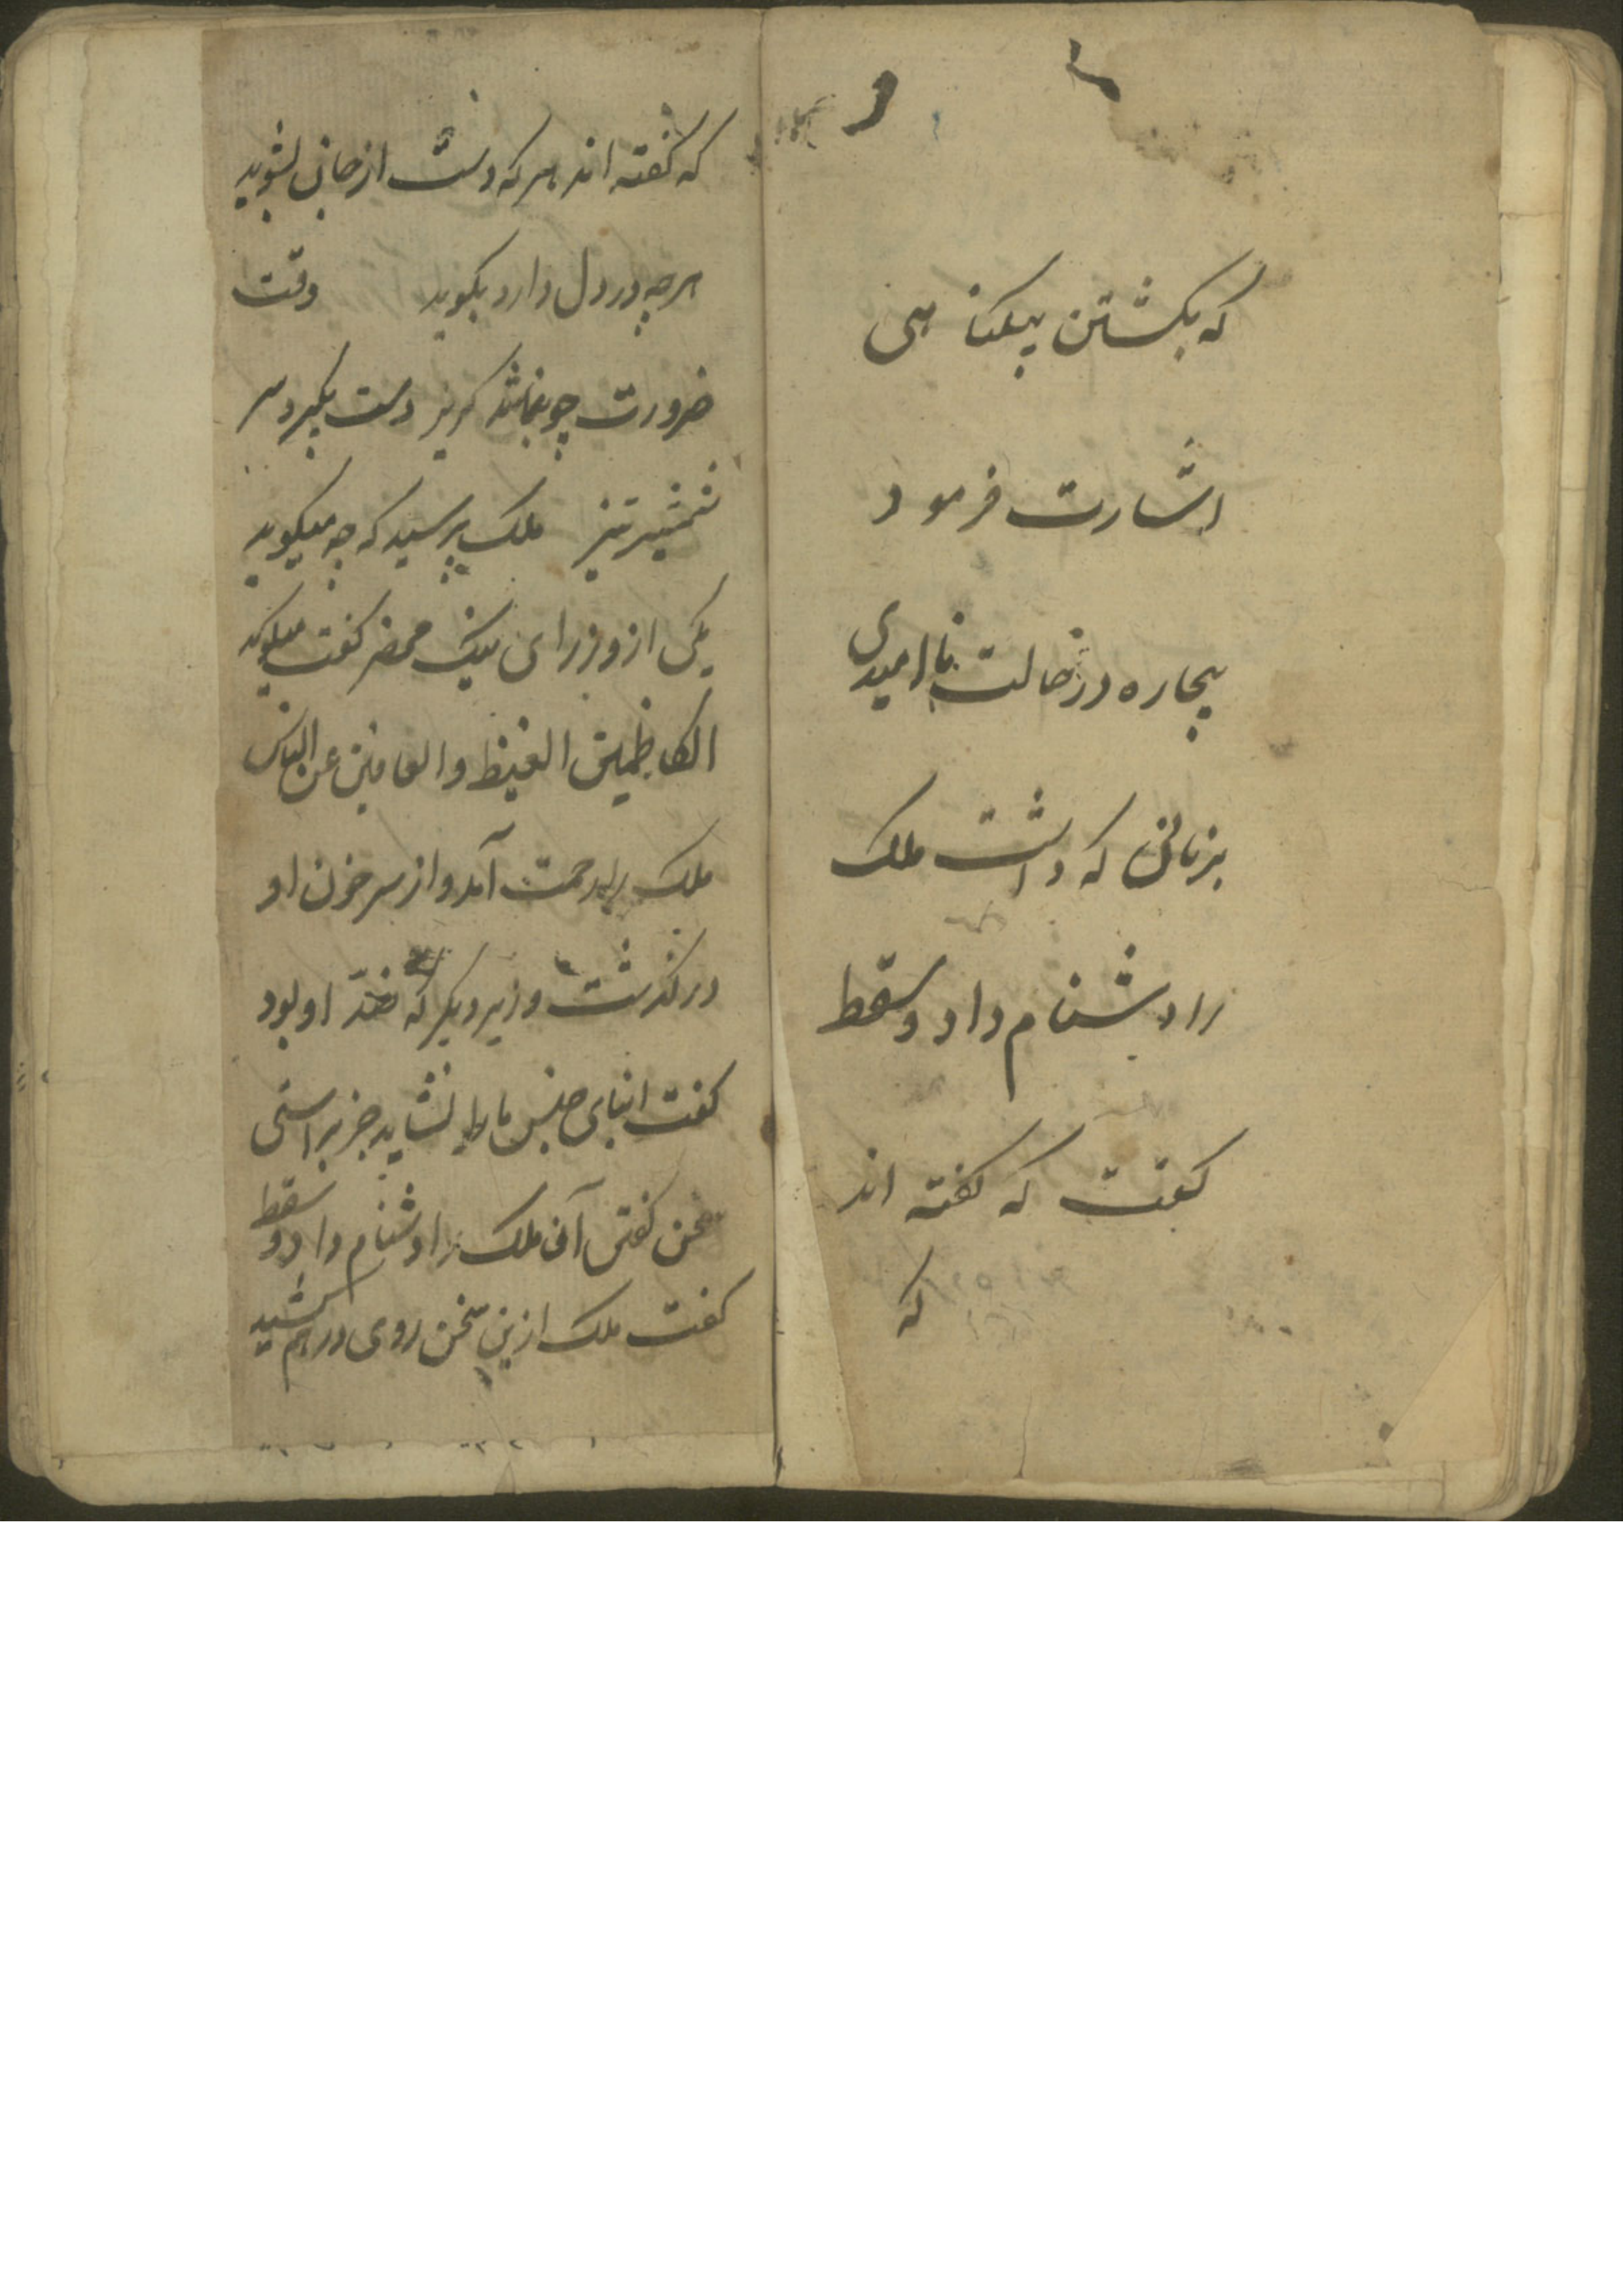 که بکشتن بیکناهی
اشارت فرمود
بیچاره درنحالت نا امیدی
بزبانی که داشت ملک
را دشنام داد و سقط
کفت که کفته اند
که
که کفته اند هرکه دست از جان بشوید
هرچه در دل دارد بکوید وقت
ضرورت چو نماند کریز دست بکیرد سر
شمشیر تیز ملک پرسید که چه میکوید
یکی از وزرای نیک محضر کفت میکوید
الکاظمین الغیظ والعافین عن الناس
ملک را رحمت آمد و از سر خون او
درکذشت وزیر دیکر که ضدّ او بود
کفت ابنای جنس ما را نشاید جز براستی
سخن کفتن آن ملک را دشنام داد و سقط
کفت ملک ازین سخن روی درهم کشید